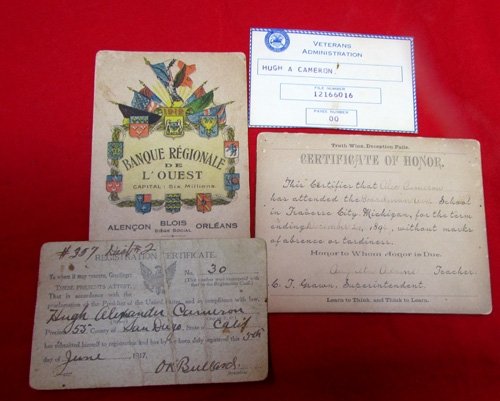 BANQUE RÉGIONALE
DE
L'OUEST
CAPITAL: Six Millions
ALENÇON BLOIS ORLÉANS
SIÈGE SOCIAL
VETERANS
ADMINISTRATION
HUGH A CAMERON
FILE NUMBER
12166016
PAYEE NUMBER
00
Truth Wins, Deception Fails.
CERTIFICATE OF HONOR.
This Certifies that Alex Cameron
has attended the Boardman Ave. School
in Traverse City, Michigan, for the term
ending December 189 without marks
of absence or tardiness.
Honor to Whom Honor is Due.
Teacher.
C. T. Grawn, Superintendent.
Learn to Think, and Think to Learn.
#357 Dist #2
REGISTRATION CERTIFICATE.
To whom it may concern, Greetings: No. 30
THESE PRESENTS ATTEST,
That in accordance with the
proclamation of the President of the United States, and in compliance with law,
Hugh Alexander Cameron
Precinct 55 County of San Diego, State of Calif
has submitted himself to registration and has by me been duly registered this 5th
day of June, 1917.
OK Bullard